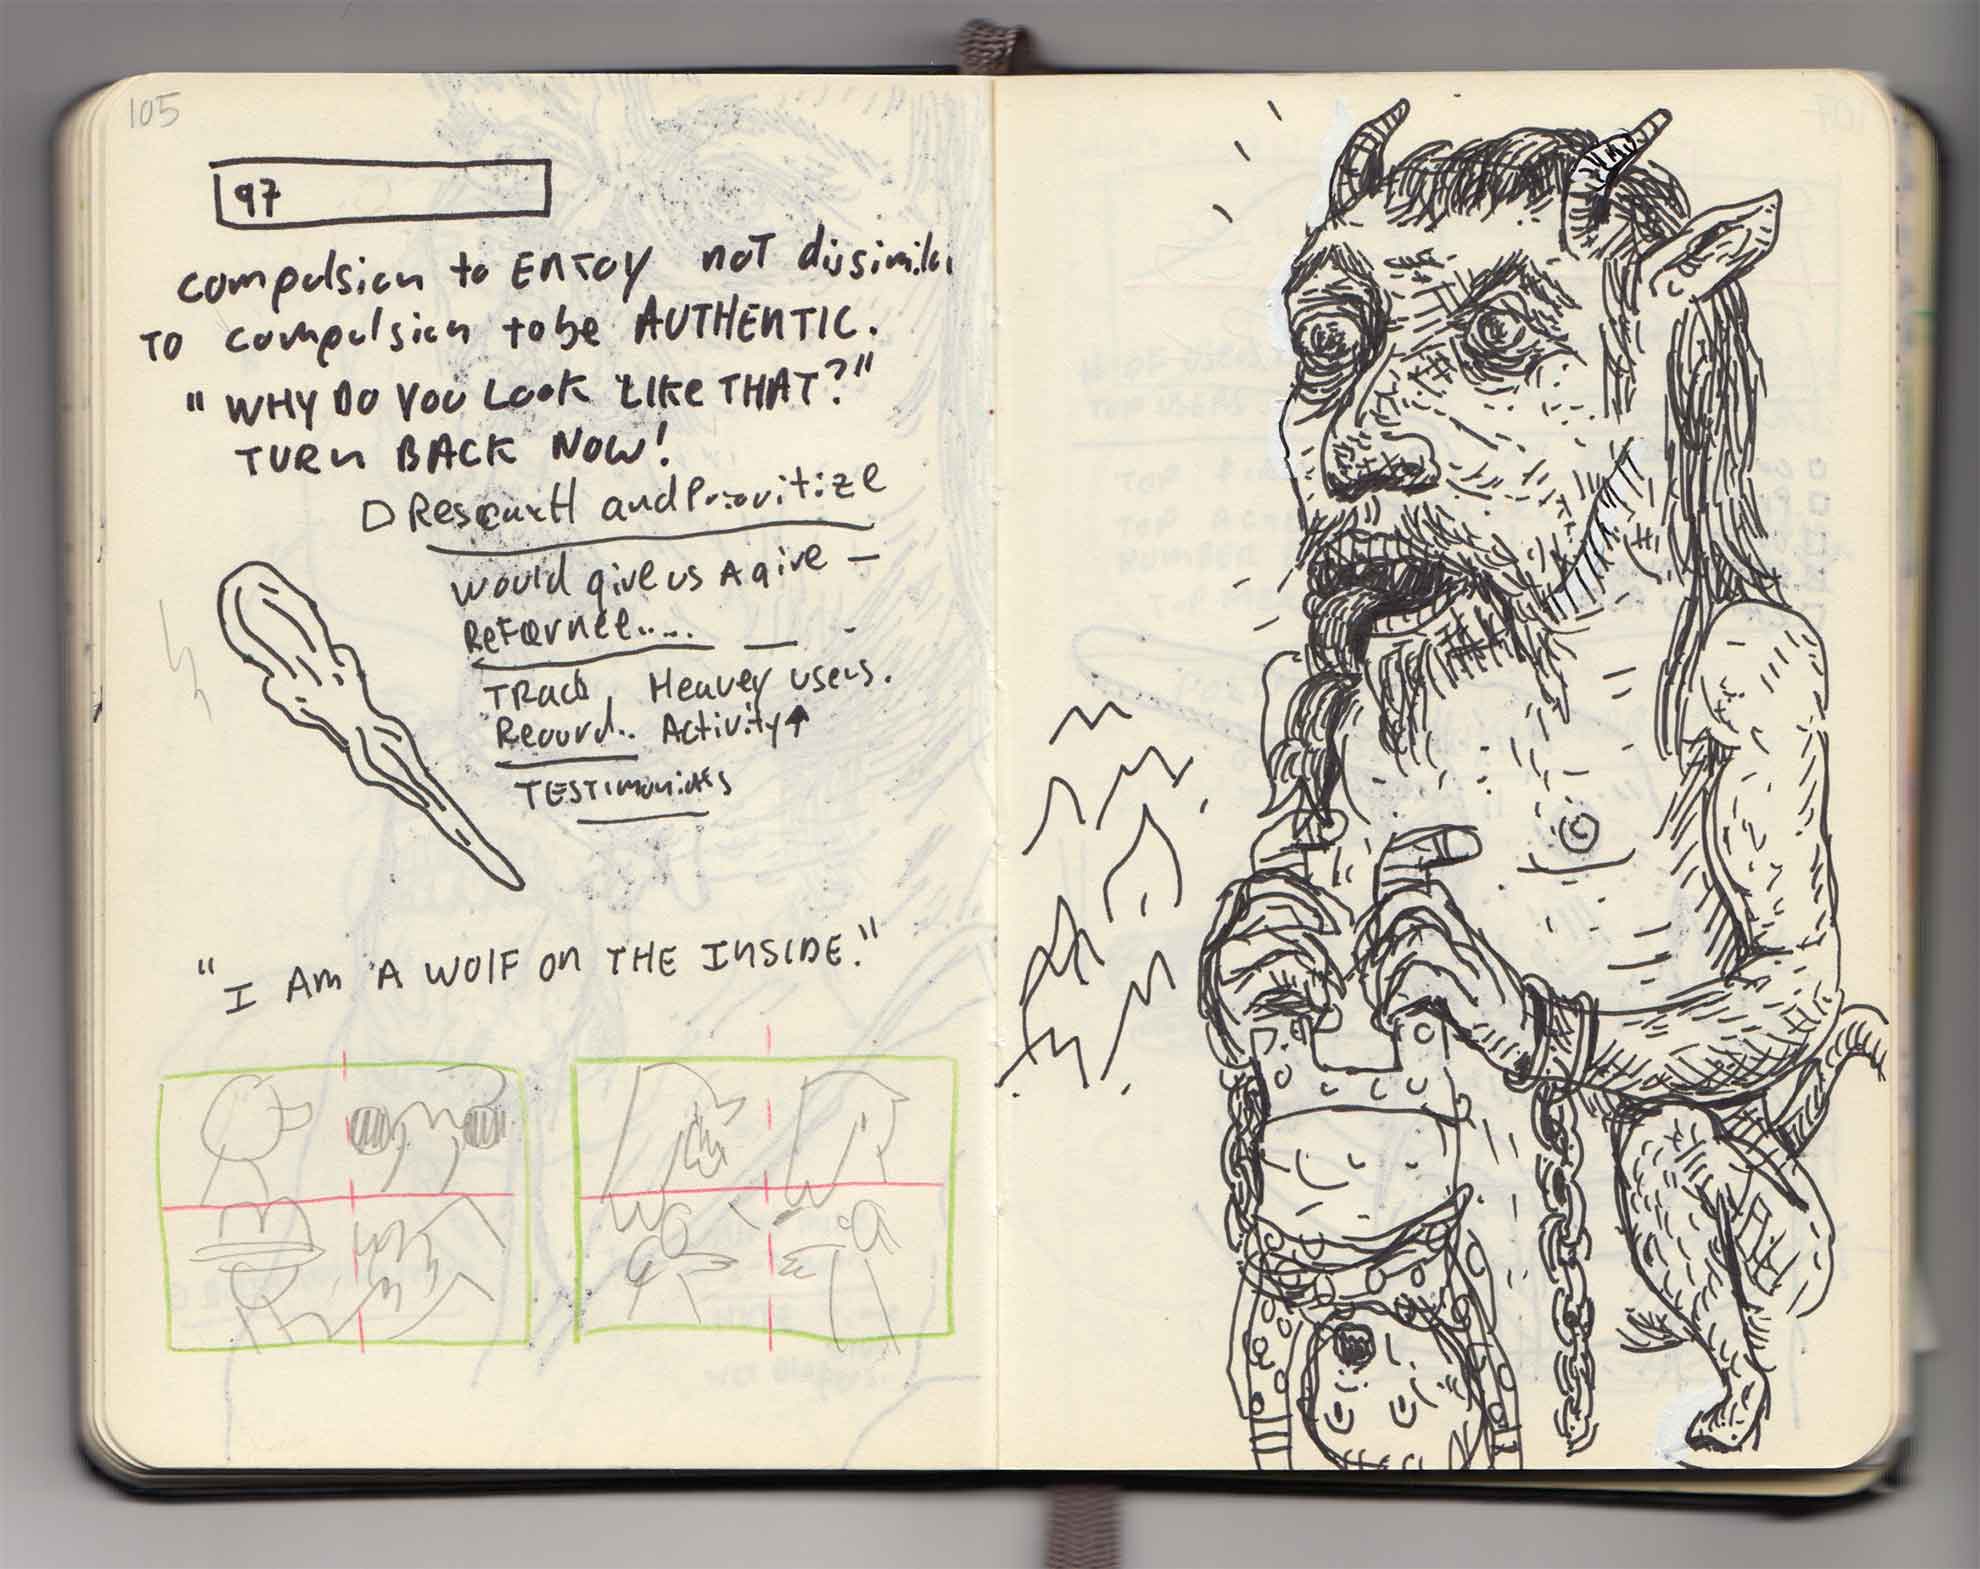 105
97
compulsion to ENJOY not dissimilar
TO compulsion to be AUTHENTIC.
"WHY DO YOU LOOK LIKE THAT?"
TURN BACK NOW!
Research and Prioritize
would give us a give –
Refernce.....
TRack Heavey users.
Record.. Activity
TESTimonials
"I AM A WOLF ON THE INSIDE."